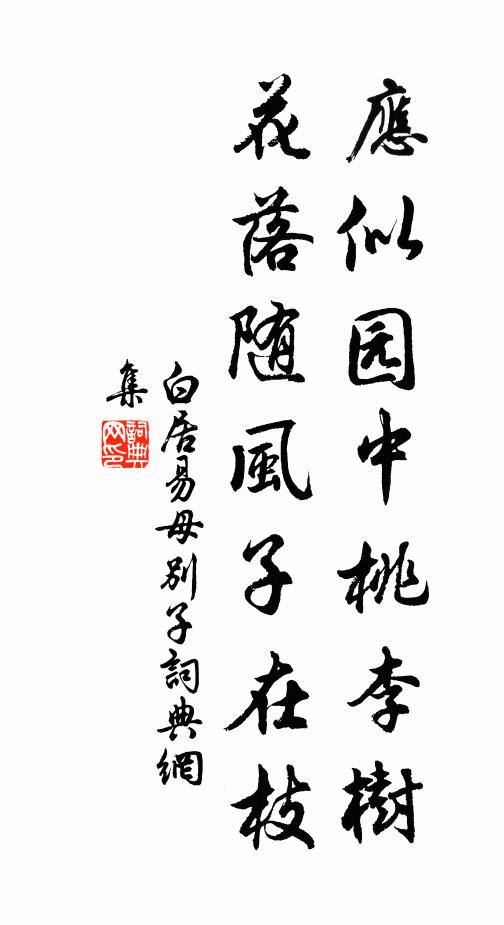 應似园中桃李樹
花落随風子在枝
白居易母别子詞典網
集
詞典
网印